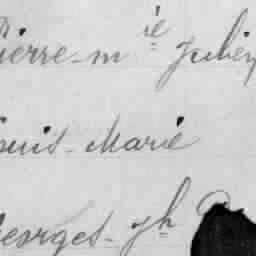 Pierre-m ie Julien
ouis-Marie
Georges-Jh